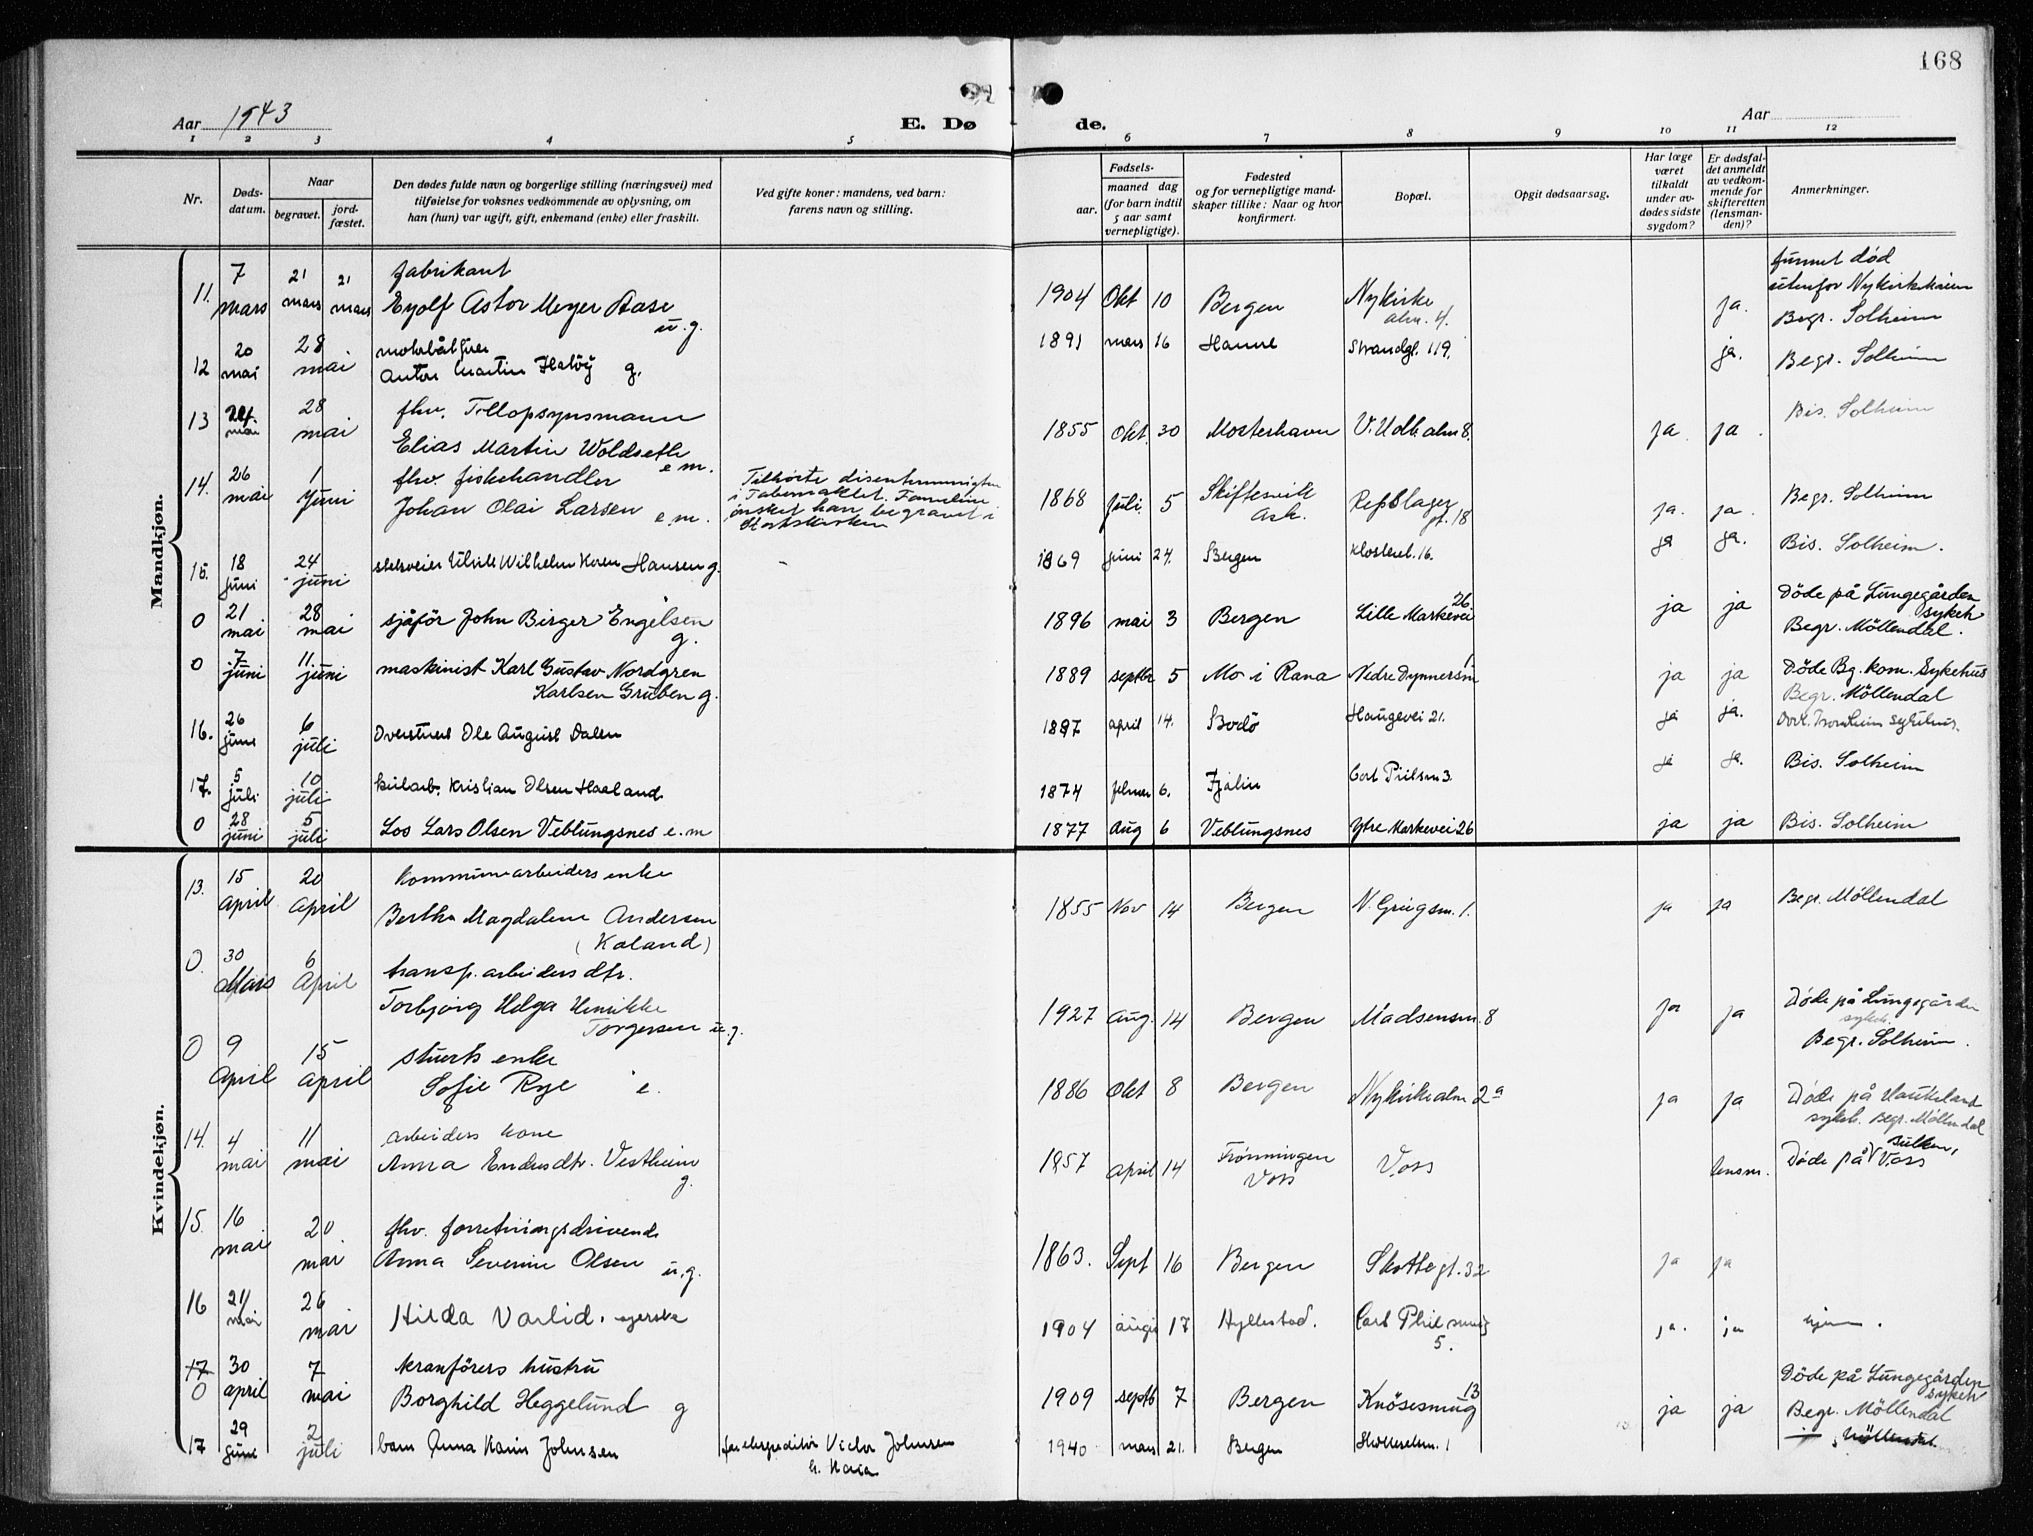 168
Aar 1943
E. Dø
de.
Aar
1 2 3 4 5 6 7 8 9 10 11 12
Nr.
Døds-
datum.
Naar
begravet.
jord-
fæstet.
Den dødes fulde navn og borgerlige stilling (næringsvei) med
tilføielse for voksnes vedkommende av oplysning, om
han (hun) var ugift, gift, enkemand (enke) eller fraskilt.
Ved gifte koner: mandens, ved barn:
farens navn og stilling.
Fødsels-
aar.
maaned dag
(for barn indtil
5 aar samt
vernepligtige).
Fødested
og for vernepligtige mand-
skaper tillike: Naar og hvor
konfirmert.
Bopæl.
Opgit dødsaarsag.
Har læge
været
tilkaldt
under av-
dødes sidste
sygdom?
Er dødsfal-
det anmeldt
av vedkom-
mende for
skifteretten
(lensman-
den)?
Anmerkninger.
Mandkjøn.
11. 7 mars 21 mars 21 mars fabrikant
Eyolf Astor Meyer Aase u.g.
1904 Okt 10 Bergen Nykirke alm. 4. ja. funnet død
utenfor Nykirkekaien
Begr. Solheim
12 20 mai 28 mai
Anton Martin g.
1891 mars 16 Strandgt. 119. ja. Begr. Solheim
13 24 mai 28 mai fhv. Tollopsynsmann
Elias Martin Woldseth e.m.
1855 Okt. 30 Mosterhavn V. Udh. alm 8. ja ja. Bis. Solheim
14. 26 mai 1 Juni fhv. fiskehandler
Johan Olai Larsen e.m.
Tilhørte dissentermenigheten
i Tabernaklet. Familien
ønsket han begravet i
Statskirken
1868 Juli 5 Skiftesvik Ask. Repslager gt. 18 ja. ja. Begr. Solheim
15. 18 juni 24 juni Wilhelm Hansen g. -
1869 juni 24. Bergen Klosteret. 16. ja ja. Bis. Solheim.
0 21 mai 28 mai sjåför John Birger Engelsen g.
1896 mai 3 Bergen Lille Markevei 26 ja ja Döde på Lungegården sykeh
Begr. Möllendal.
0 7. juni 11. juni maskinist Karl Gustav Nordgren
Karlsen Gruben g.
1889 septbr 5 Mo i Rana Nedre Dynnersm 1 ja ja Döde Bg. kom. Sykehus
Begr. Möllendal
16. 26 juni 6 juli Ole August Dalen
1897 april 14. Bodö Haugevei 21. ja ja.
17. 5 juli 10 juli Kristian Olsen Haaland
1874 6. Fjaler 3. ja ja. Bis. Solheim
0 28 juni 5 juli Los Lars Olsen Veblungsnes e.m
1877 Aug 6 Veblungsnes Ytre Markevei 26 ja ja Bis. Solheim
Kvindekjøn.
13. 15 April 20 April Kommunearbeiders enke
Bertha Magdalene Andersen
(Kaland)
1855 Nov 14 Bergen N. Griegsm. 1. ja ja Begr. Möllendal
0. 30 Mars 6 April transp. arbeiders dtr.
Torbjørg Helga Henrikke
Torgersen u.g.
1927 Aug. 14 Bergen Madsensm. 8 ja ja Døde på Lungegården
sykeh.
Begr. Solheim.
0 9 April 15 April stuerts enke
Sofie Rye e.
1886 Okt 8 Bergen Nykirkealm 2a ja ja Døde på Haukeland
sykeh. Begr. Møllendal
14. 4 mai 11 mai arbeiders kone
Anna Endresdtr. Vestheim g.
1857 April 14 Trønningen
Voss Voss lensm. Døde på Bulken, Voss
15. 16 mai 20 mai fhv. forretningsdrivende
Anna Severine Olsen u.g.
1863. Sept 16 Bergen Skottegt. 32 ja ja
16 21 mai 26 mai Hilda Varlid.
1904 17 Hyllestad. 5. ja. ja
17 0 30 april 7 mai kranförers hustru
Borghild Heggelund g
1909 septb 7 Bergen Knösesmug 13 ja ja Döde på Lungegården sykeh
Begr. Möllendal
17 29 juni 2 juli barn Anna Karin Johnsen
Victor Johnsen
1940 mars 21. Bergen 1 Möllendal.